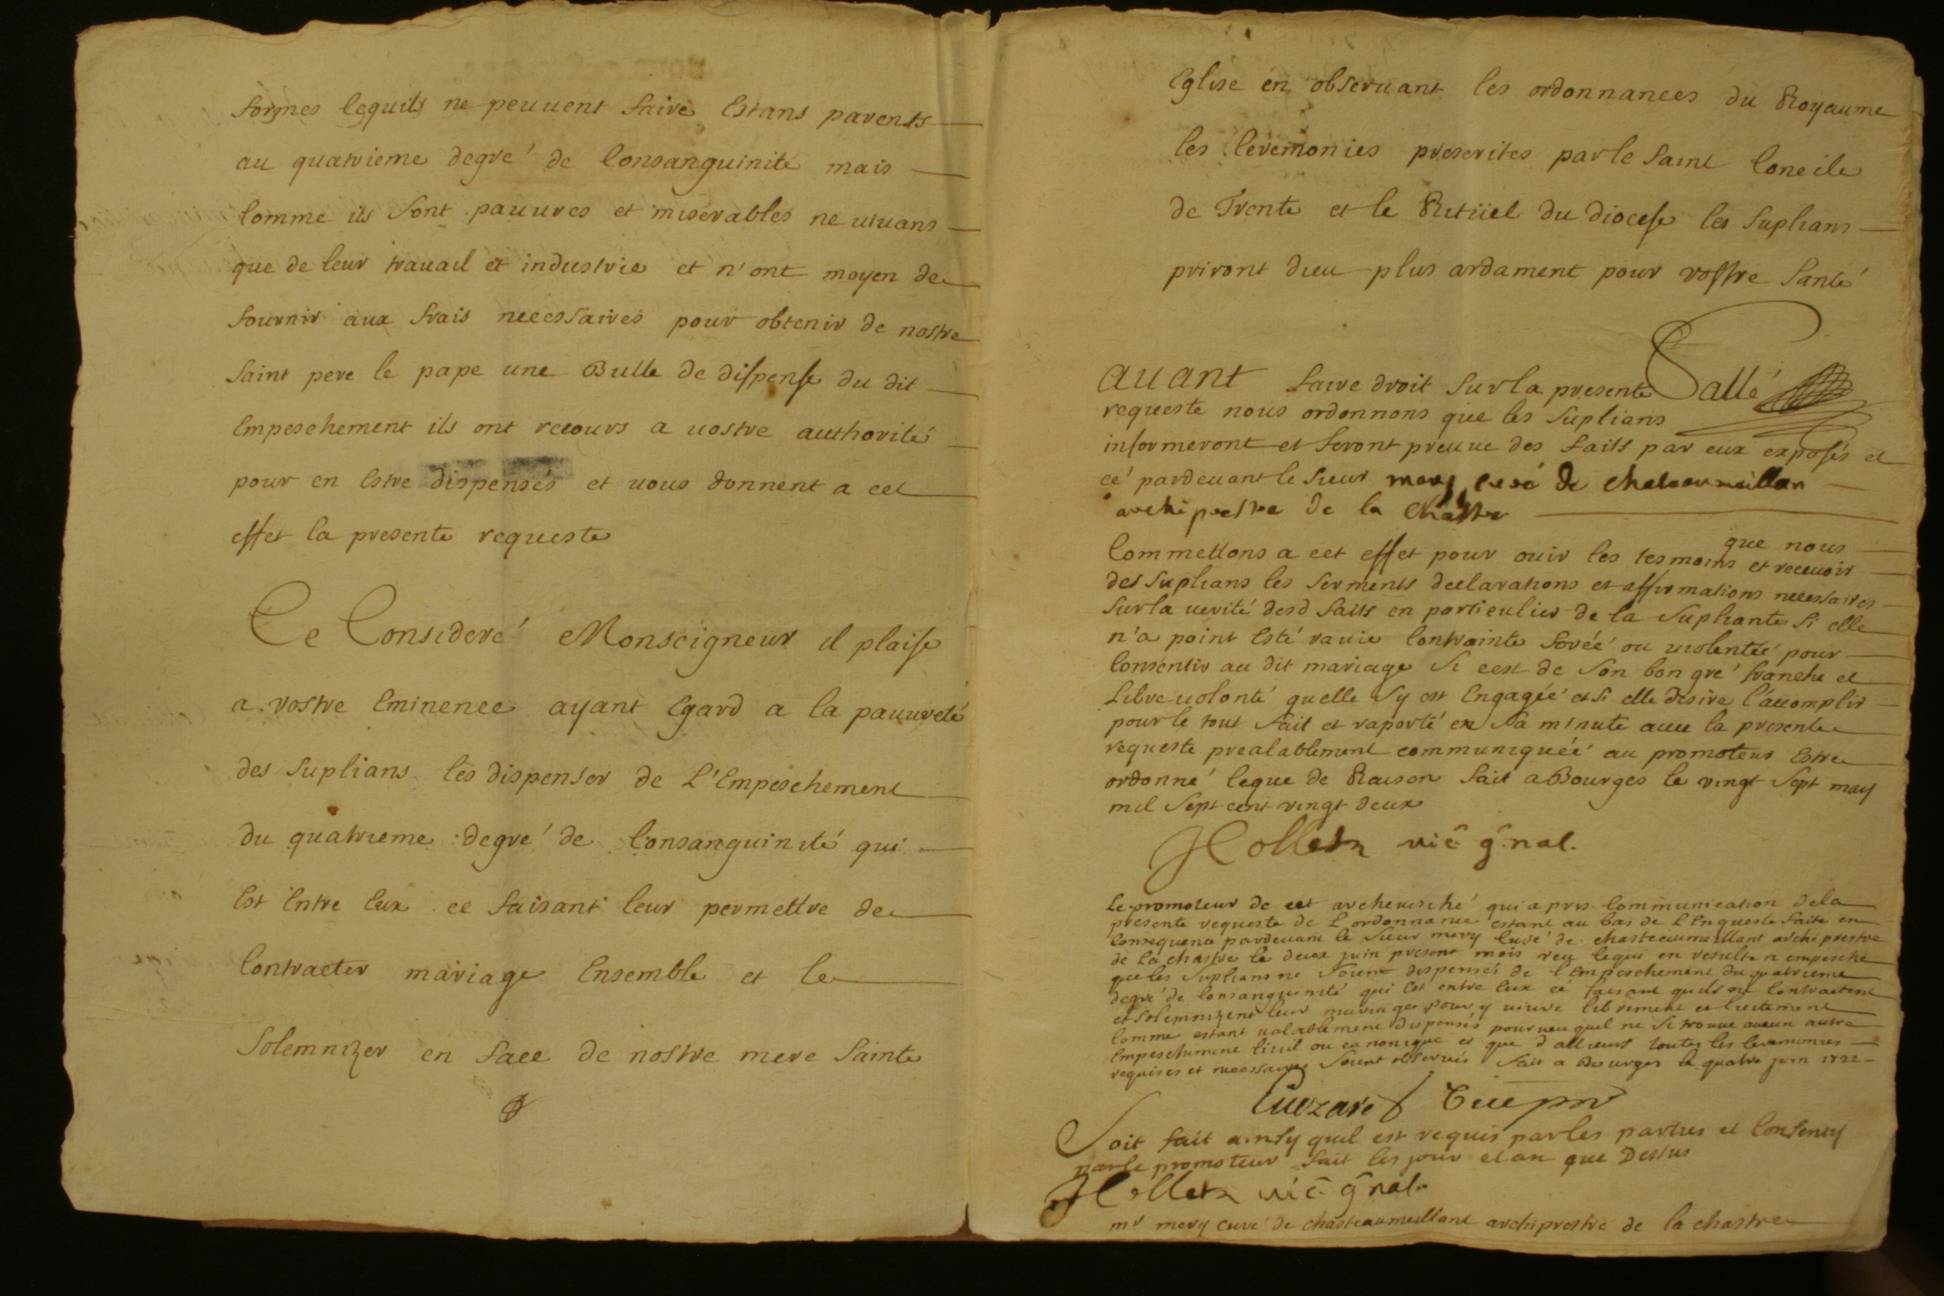 formes cequils ne peuuent faire Estans parents
au quatrieme degré de Consanguinité mais
Comme ils sont pauures et miserables ne viuans
que de leur trauail et industrie et n'ont moyen de
fournir aux frais necessaires pour obtenir de nostre
saint pere le pape une Bulle de dispense du dit
Empeschement ils ont recours a vostre authorité
pour en Estre dispensés et vous donnent a cet
effet la presente requeste
Ce Consideré Monseigneur il plaise
a vostre Eminence ayant Egard a la pauureté
des suplians les dispenser de L'Empeschement
du quatrieme degré de Consanguinité qui
Est Entre Eux ce faisant leur permettre de
Contracter mariage Ensemble et le
Solemnizer en face de nostre mere Sainte
Eglise en obseruant les ordonnances du Royaume
les Ceremonies prescrites par le saint Concile
de Trente et le Ritüel du diocese les suplians
priront dieu plus ardament pour vostre santé
Sallé
auant faire droit sur la presente
requeste nous ordonnons que les suplians
informeront et feront preuue des faits par eux exposés et
cé pardeuant le sieur mery curé de chateaumeillan
archiprestre de la Chastre
que nous
Commettons a cet effet pour ouir les tesmoins et receuoir
des suplians les serments declarations et affirmations necessaires
sur la verité desd faits en particulier de la supliante si elle
n'a point Esté rauie Contrainte forcéé ou violentéé pour
Consentir au dit mariage si cest de son bon gré franche et
Libre volonté quelle sy est Engagéé et si elle desire l'accomplir
pour le tout fait et raporté en sa minute auec la presente
requeste prealablement communiquéé au promoteur Estre
ordonné ceque de Raison fait a Bourges le vingt sept may
mil sept cent vingt deux
vic g̃nal.
Le promoteur de cet archeuesché qui a pris Communication de la
presente requeste de L'ordonnance estant au bas de L'Enqueste faite en
Consequence pardeuant le sieur mery Curé de chasteaumeillant archiprestre
de la chastre le deux juin present mois veu cequi en resulte n'empesche
que les suplians ne soient dispensés de l'Empeschement du quatrieme
degré de Consanguinité qui Est entre Eux cé faisant quils ne Contractent
et solemnizent leur mariage pour y viure librement et licitement
Comme estant valablement dispensés pourueu quil ne se trouue aucun autre
Empeschement Ciuil ou canonique et que d'ailleurs toutes les Ceremonies
requises et necessaires soient obserués fait a Bourges le quatre juin 1722
Soit fait ainsy quil est requis par les parties et Consenty
par le promoteur fait les jour et an que Dessus
vic g̃nal.
mr mery curé de chasteaumeillant archiprestre de la chastre